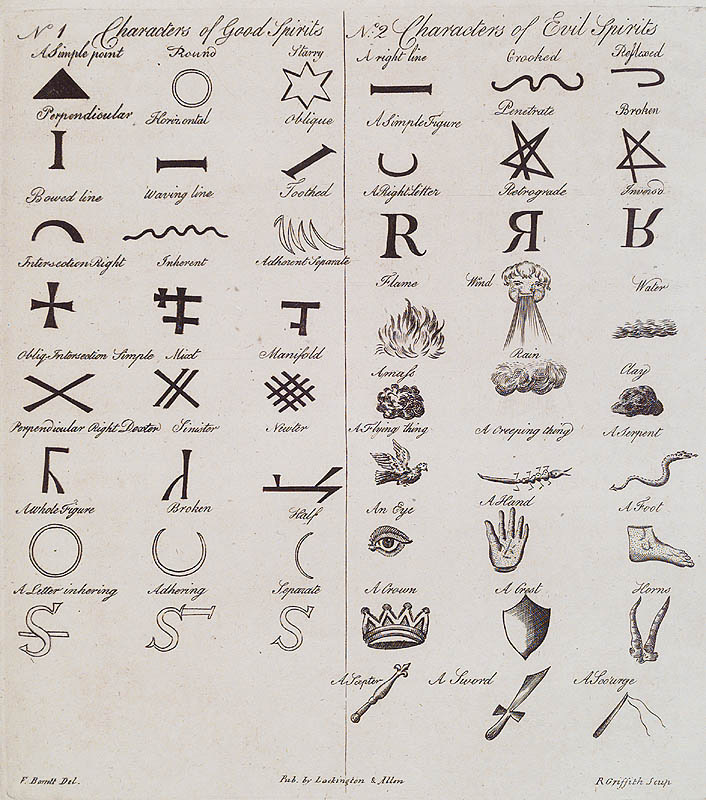 Nº 1 Characters of Good Spirits
A Simple point Round Starry
Perpendicular Horizontal Oblique
Bowed line Waving line Toothed
Intersection Right Inherent Adherent Separate
Obliq. Intersection Simple Mixt Manifold
Perpendicular Right Dexter Sinister Newter
A whole Figure Broken Half
A Letter inhering Adhering Separate
S S S
Nº 2 Characters of Evil Spirits
A right line Crooked Reflexed
A Simple Figure Penetrate Broken
A Right Letter Retrograde Inversd
R R R
Flame Wind Water
A mass Rain Clay
A Flying thing A Creeping thing A Serpent
An Eye A Hand A Foot
A Crown A Crest Horns
A Scepter A Sword A Scourge
F. Barrett Del.
Pub. by Lackington & Allen
R Griffith Sculp